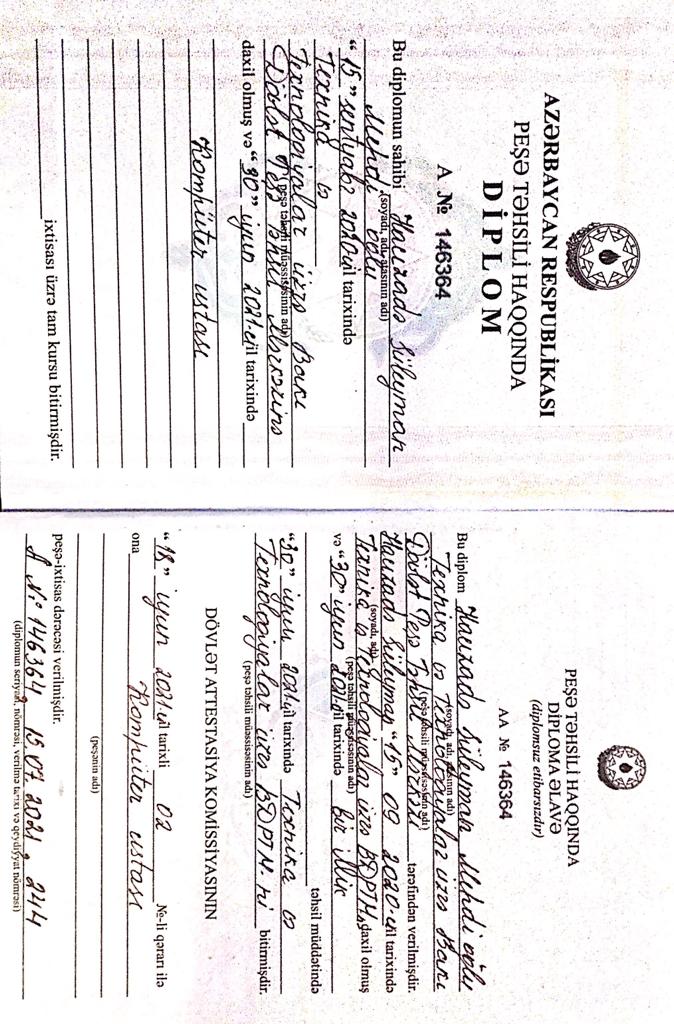 AZƏRBAYCAN RESPUBLİKASI
PEŞƏ TƏHSİLİ HAQQINDA
DİPLOM
A № 146364
Bu diplomun sahibi Hacızadə Süleyman
(soyadı, adı, atasının adı)
Mehdi oğlu
“15” sentyabr 2020-ci il tarixində
Texnika və
Texnologiyalar üzrə Bakı
(peşə təhsili müəssisəsinin adı)
Dövlət Peşə Təhsil Mərkəzinə
daxil olmuş və “30” iyun 2021-ci il tarixində
Kompüter ustası
ixtisası üzrə tam kursu bitirmişdir.
PEŞƏ TƏHSİLİ HAQQINDA
DİPLOMA ƏLAVƏ
(diplomsuz etibarsızdır)
AA № 146364
Bu diplom Hacızadə Süleyman Mehdi oğlu
(soyadı, adı, atasının adı)
Texnika və Texnologiyalar üzrə Bakı
(peşə təhsili müəssisəsinin adı)
Dövlət Peşə Təhsil Mərkəzi tərəfindən verilmişdir.
Hacızadə Süleyman “15” 09 2020-ci il tarixində
(soyadı, adı)
Texnika və Texnologiyalar üzrə BDPTM-nə daxil olmuş
(peşə təhsili müəssisəsinin adı)
və “30” iyun 2021-ci il tarixində bir illik
təhsil müddətində
“30” iyun 2021-ci il tarixində Texnika və
Texnologiyalar üzrə BDPTM-ni bitirmişdir.
(peşə təhsili müəssisəsinin adı)
DÖVLƏT ATTESTASİYA KOMİSSİYASININ
“18” iyun 2021-ci il tarixli 02 №-li qərarı ilə
ona Kompüter ustası
(peşənin adı)
peşə-ixtisas dərəcəsi verilmişdir.
A № 146364, 15 07 2021, 2414
(diplomun seriyası, nömrəsi, verilmə tarixi və qeydiyyat nömrəsi)